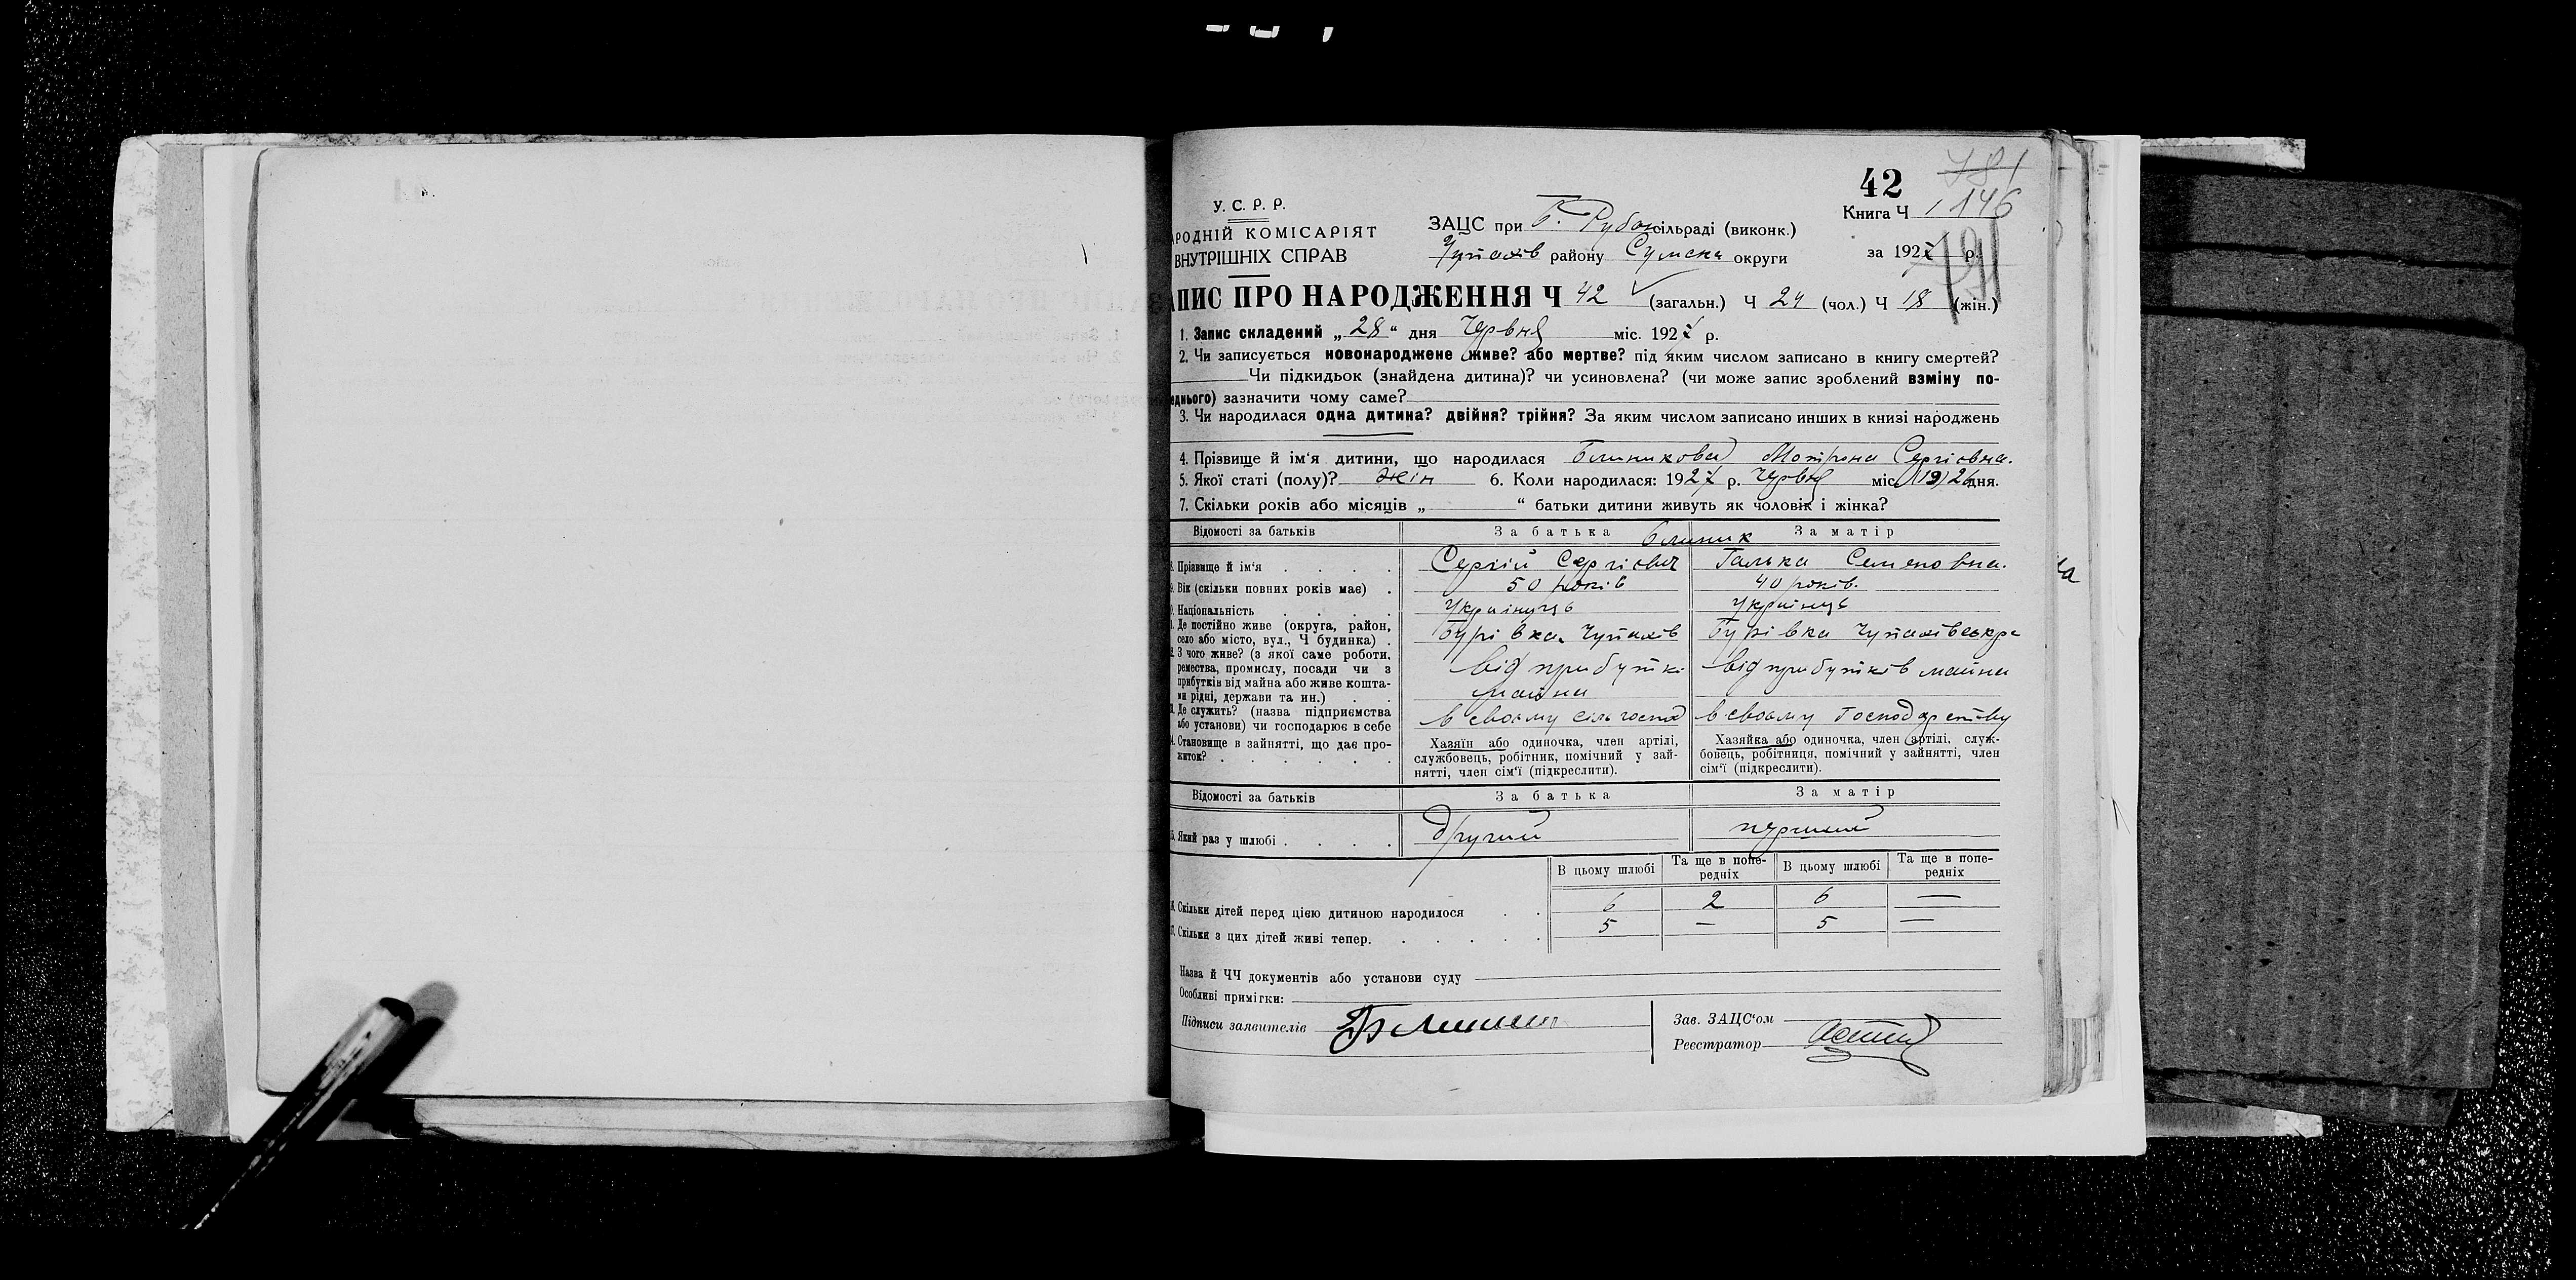 42
146
У. С. Р. Р.
Книга Ч 1
РОДНІЙ КОМІСАРІЯТ
ВНУТРІШНІХ СПРАВ
ЗАЦС при Б. Рубан сільраді (виконк.)
Чупахів району Сумська округи
за 192 р.
ПИС ПРО НАРОДЖЕННЯ Ч 42 (загальн.) Ч 24 (чол.) Ч 18 (жін.)
1. Запис складений „28“ дня Червня міс. 1927 р.
2. Чи записується новонароджене живе? або мертве? під яким числом записано в книгу смертей?
Чи підкидьок (знайдена дитина)? чи усиновлена? (чи може запис зроблений взміну по-
еднього) зазначити чому саме?
3. Чи народилася одна дитина? двійня? трійня? За яким числом записано инших в книзі народжень
4. Прізвище й ім'я дитини, що народилася Блиникова Мотрона Сергіовна.
5. Якої статі (полу)? жін 6. Коли народилася: 1927 р. Червня міс. 26 дня.
7. Скільки років або місяців „ “ батьки дитини живуть як чоловік і жінка?
Відомості за батьків За батька За матір
Блиник
Прізвище й ім'я Сергій Сергіович Галька Семеновна.
Вік (скільки повних років має) 50 років 40 років.
Національність Українуць Українць
Де постійно живе (округа, район, село або місто, вул., Ч будинка) Бурівка Чупахів Бурівка Чупахівськр
З чого живе? (з якої саме роботи, ремества, промислу, посади чи з прибутків від майна або живе кошта-ми рідні, держави та ин.) від прибутк майна від прибутків майна
Де служить? (назва підприємства або установи) чи господарює в себе в своьму сіль господ в своьму Господарству
Становище в зайнятті, що дає про-житок?
Хазяїн або одиночка, член артілі, службовець, робітник, помічний у зай-нятті, член сім'ї (підкреслити).
Хазяйка або одиночка, член артілі, служ-бовець, робітниця, помічний у зайнятті, член сім'ї (підкреслити).
Відомості за батьків За батька За матір
Який раз у шлюбі другий перший
В цьому шлюбі Та ще в попе-редніх В цьому шлюбі Та ще в попе-редніх
Скільки дітей перед цією дитиною народилося 6 2 6 —
Скільки з цих дітей живі тепер. 5 — 5 —
Назва й ЧЧ документів або установи суду
Особливі примітки:
Підписи заявителів Блиник
Зав. ЗАЦС'ом
Реєстратор